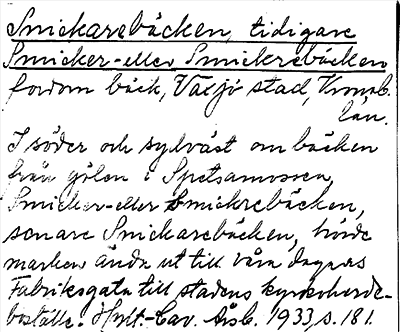 Snickarebäcken, tidigare
Smicker- eller Smickrebäcken
fordom bäck, Växjö stad, Kronob.
län.
I söder och sydväst om bäcken
från gölen i Spetsamossen,
Smicker- eller Smickrebäcken,
senare Snickarebäcken, hörde
marken ända ut till våra dagars
Fabriksgata till stadens kyrkoherde-
boställe. Hylt.-Cav. Årsb. 1933, s. 181.